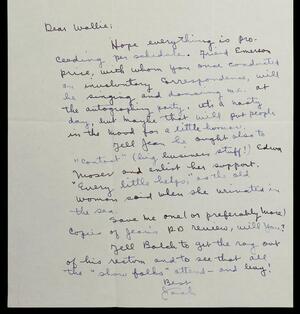 Dear Wallie;
Hope everything is pro-
ceeding per schedule. Friend Emerson
Price, with whom you once conducted
an involuntary correspondence, will
be singing and dancing m.c. at
the autographing party. It's a nasty
day, but maybe that will put people
in the mood for a little humor.
Tell Jean he ought also to
"Contact" (big business stuff!) Edwa
Moser and enlist her support.
"Every little helps," as the old
woman said when she urinated in
the sea.
Save me one (or preferably more)
Copies of Jean's P.D. review, will you?
Tell Balch to get the rag out
of his rectum and to see that all
the "show folks" attend – and buy!
Best